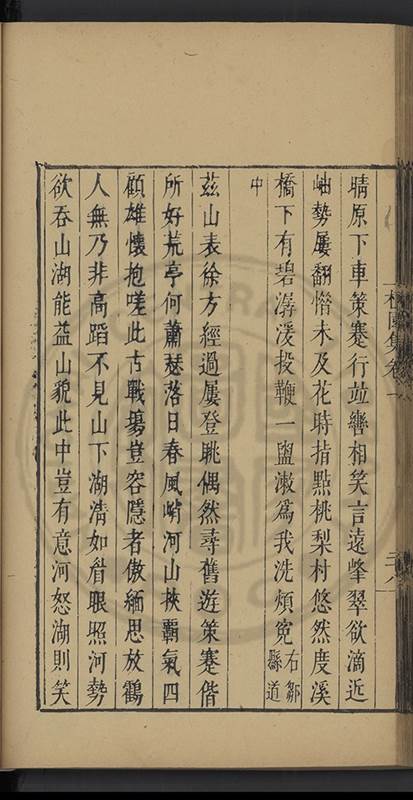 晴原下車策蹇行竝轡相笑言遠峰翠欲滴近
岫勢屢翻惜未及花時指點桃梨村悠然度溪
橋下有碧潺湲投鞭一盥漱爲我洗煩寃右鄒縣道
中
茲山表徐方經過屢登眺偶然尋舊遊策蹇偕
所好荒亭何蕭瑟落日春風峭河山挾霸氣四
顧雄懷抱嗟此古戰塲豈容隱者傲緬思放鶴
人無乃非高蹈不見山下湖淸如眢眼照河勢
欲吞山湖能益山貌此中豈有意河怒湖則笑